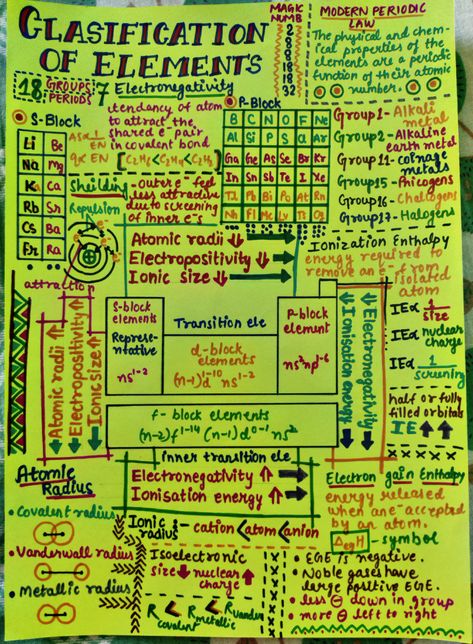 CLASIFICATION
OF ELEMENTS
MAGIC
NUMB
2
8
8
18
18
32
MODERN PERIODIC
LAW
The physical and chem-
ical properties of the
elements are a periodic
function of their atomic
number.
18 GROUPS 7
PERIODS
Electronegativity
tendancy of atom
to attract the
shared e⁻ pair
in covalent bond
[C₂H₆<C₂H₄<C₂H₂]
S-Block
Li Be
Na Mg
K Ca
Rb Sr
Cs Ba
Fr Ra
P-Block
B C N O F Ne
Al Si P S Cl Ar
Ga Ge As Se Br Kr
In Sn Sb Te I Xe
Tl Pb Bi Po At Rn
Nh Fl Mc Lv Ts Og
Group 1- Alkali
metal
Group 2- Alkaline
earth metal
Group 11- coinage
metals
Group 15 - Pnicogens
Group 16 - Chalcogens
Group 17- Halogens
Sheilding - outer e⁻ feel
less attractive
due to screening
of inner e⁻s
Repulsion
attraction
Atomic radii ↓
Electropositivity ↓
Ionic size ↓
Ionization Enthalpy
energy required to
remove an e⁻ from
isolated
atom
IEα 1/size
IEα nuclear
charge
IEα 1/screening
half or fully
filled orbitals
IE ↑↑
Atomic radii ↑
Electropositivity ↑
Ionic size ↑
S-block
elements
Representative
ns¹⁻²
Transition ele
d-block
elements
(n-1)d¹⁻¹⁰ ns¹⁻²
P-block
element
ns²np¹⁻⁶
↓ Ionisation energy
↓ Electronegativity
f- block elements
(n-2)f¹⁻¹⁴ (n-1)d⁰⁻¹ ns²
inner transition ele
Electronegativity ↑
Ionisation energy ↑
Atomic
Radius
• Covalent radius
• Vanderwall radius
• Metallic radius
Ionic :- cation < atom < anion
radius
Isoelectronic
size ↓ nuclear ↑
charge
R covalent < R metallic < R vander
Electron gain Enthalpy
energy released
when an e⁻ accepted
by an atom.
ΔegH - symbol
• EGE is negative.
• Noble gases have
large positive EGE.
• less ⊖ down in group
• more ⊖ left to right